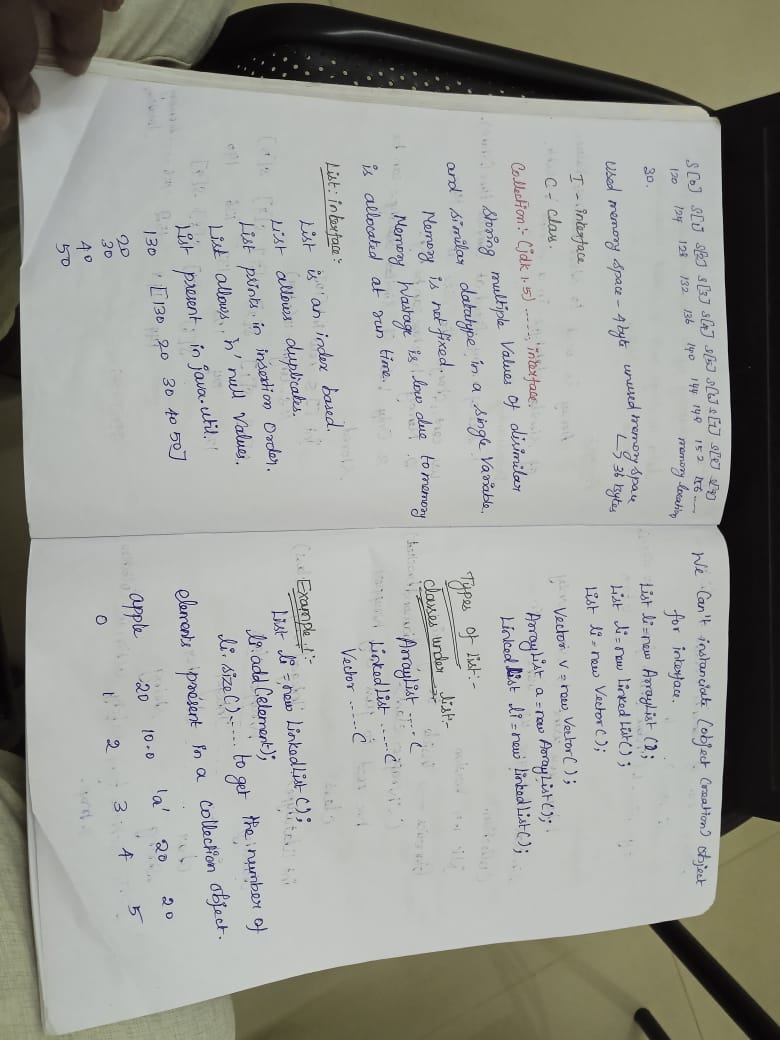 S[0] S[1] S[2] S[3] S[4] S[5] S[6] S[7] S[8] S[9]
120 124 128 132 136 140 144 148 152 156....
memory location
30.
Used memory space - 4 byte unused memory space
↳ 36 bytes
I - interface
C - class.
Collection:- (jdk 1.5) ...... interface.
Storing multiple Values of disimilar
and similar datatype in a single Variable.
Memory is not fixed.
Memory Wastage is low due to memory
is allocated at run time.
List: interface:-
List is an index based.
List allows duplicates.
List prints in insertion Order.
List allows 'n' null Values.
List present in java.util.
130 [130 20 30 40 50]
20
30
40
50
We Can't instanciate (object Creation) object
for interface.
List li = new ArrayList ();
List li = new Linked List();
List li = new Vector();
Vector v = new Vector();
ArrayList a = new ArrayList();
Linked List li = new LinkedList();
Types of List:-
classes under list:-
ArrayList ..... C
LinkedList ...... C
Vector ...... C
Example 1:-
List li = new LinkedList ();
li.add (element);
li. size() ..... to get the number of
elements present in a collection object.
apple 20 10.0 'a' 20 20
0 1 2 3 4 5